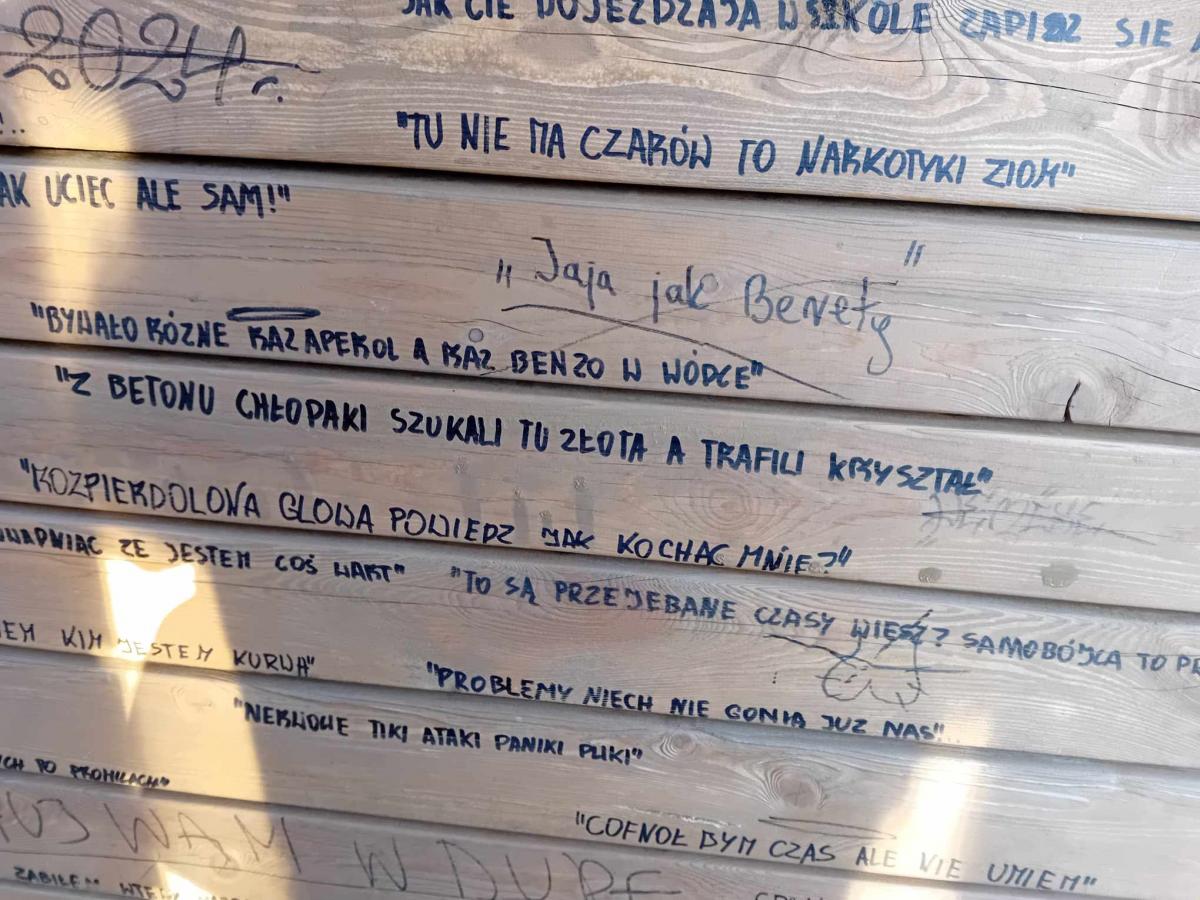 JAK CIE DOJEŻDZAJA W SZKOLE ZAPISZ SIE
2024r.
"TU NIE MA CZARÓW TO NARKOTYKI ZIOM"
UCIEC ALE SAM!"
„Jaja jak Berety"
"BYWAŁO RÓZNE RAZ APEROL A RAZ BENZO W WÓDCE"
"Z BETONU CHŁOPAKI SZUKALI TU ZŁOTA A TRAFILI KRYSZTAŁ"
"ROZPIERDOLONA GLOWA POWIEDZ JAK KOCHAC MNIE?"
ZE JESTEM COŚ WART" "TO SĄ PRZEJEBANE CZASY WIESZ? SAMOBÓJCA TO
KIM JESTEM KURWA"
"PROBLEMY NIECH NIE GONIĄ JUZ NAS"..
"NERWOWE TIKI ATAKI PANIKI PLIKI"
PO PROMILACH"
WAM W DUPE
"COFNOŁ BYM CZAS ALE NIE UMIEM"
ZABIŁEM WTEDY